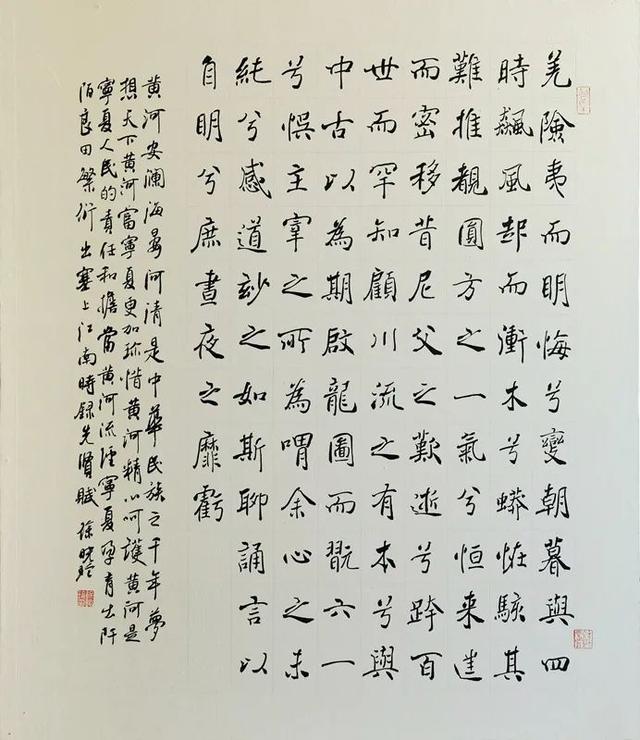 羌險夷而明悔兮變朝暮與四
時飆風起而衝木兮蟒恠駭其
難推觀圓方之一氣兮恒来進
而密移昔尼父之歎逝兮跨百
世而罕知顧川流之有本兮與
中古以為期啟龍圖而翫六一
兮悞主宰之所為喟余心之未
純兮感道玅之如斯聊誦言以
自明兮庶晝夜之靡虧
黄河安澜海晏河清是中華民族之千年夢
想天下黄河富寧夏更加珍惜黄河精心呵護黄河是
寧夏人民的責任和擔當黄河流經寧夏孕育出阡
陌良田繁衍出塞上江南時録先賢賦 徐